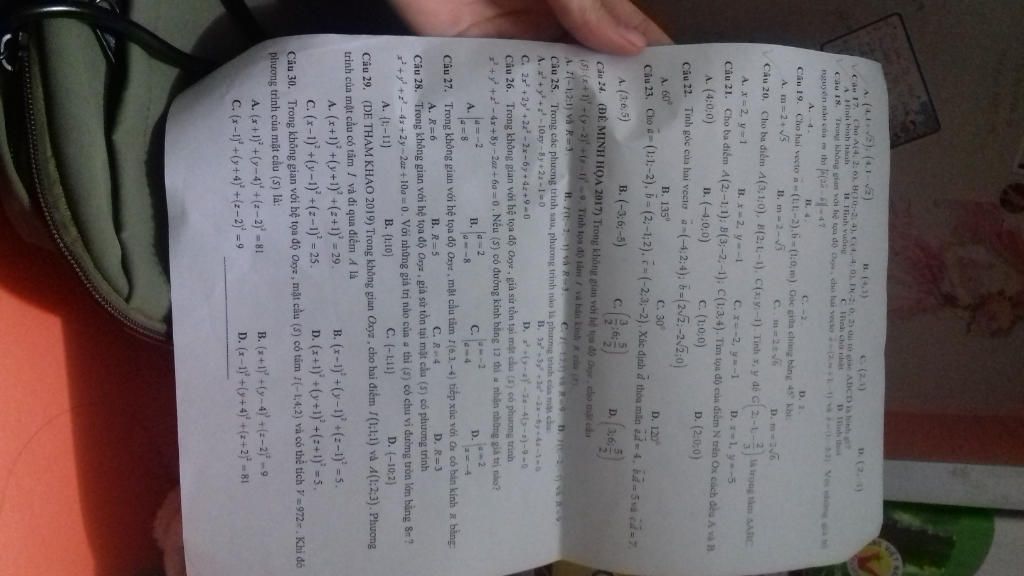 Câu 17. Cho A(4; 2; 6), B(10; -2; 4), C(4; -4; 0), D(-2; 0; 2) thì tứ giác ABCD là hình gì?
A. Hình bình hành B. Hình vuông C. Hình chữ nhật D. Hình thoi
Câu 18. Trong không gian với hệ tọa độ Oxyz, cho hai vectơ
nguyên nào của m thì
A. -4. B. 4. C. -2 D. 2.
Câu 19. Cho hai vectơ a = (1;1;-2), b = (1;0;m). Góc giữa chúng bằng 45° khi:
A. m = 2+√5 B. m = 2-√3 C. m = 2±√6 D. m = 2√6
Câu 20. Cho ba điểm A(3;1;0), B(2;1;-1), C(x;y;-1). Tính x, y để G(2;-1;-2/3) là trọng tâm ΔABC
A. x = 2, y = 1 B. x = 2, y = -1 C. x = -2, y = -1 D. x = 1, y = -5
Câu 21. Cho ba điểm A(2;-1;1); B(3;-2;-1); C(1;3;4). Tìm tọa độ của điểm N trên Ox cách đều A và B.
A. (4;0;0) B. (-4;0;0) C. (1;0;0) D. (2;0;0)
Câu 22. Tính góc của hai vectơ a = (-4;2;4), b = (2√2;-2√2;0)
A. 60° B. 135° C. 30° D. 120°
Câu 23. Cho a = (1;1;-2), b = (2;-1;2), c = (-2;3;-2). Xác định d thỏa mãn a.d = 4, b.d = 5 và c.d = 7.
A. (3;6;5) B. (-3;6;-5) C. (3/2;6;5/2) D. (3;6;5/2)
Câu 24. (ĐỀ MINH HỌA 2017) Trong không gian với hệ tọa độ Oxyz, cho mặt cầu
(S):(x+1)²+(y-2)²+(z-1)²=9. Tính tọa độ tâm I và bán kính R của (S).
A. I(-1;2;1) và R = 3 B. I(1;-2;-1) và R = 3 C. I(-1;2;1) và R = 9 D. I(1;-2;-1) và R = 9
Câu 25. Trong các phương trình sau, phương trình nào là phương trình của mặt cầu
A. x²+y²+z²-10xy-8y+2z-1=0
C. 2x²+2y²+2z²-2x-6y+4z+9=0
Câu 26. Trong không gian với hệ tọa độ Oxyz, giả sử tồn tại mặt cầu (S) có phương trình
x²+y²+z²-4x+8y-2az+6a=0. Nếu (S) có đường kính bằng 12 thì a nhận những giá trị nào?
A. [a=-2 a=8 B. [a=2 a=-8 C. [a=-2 a=4 D. [a=2 a=-4
Câu 27. Trong không gian với hệ tọa độ Oxyz, mặt cầu tâm I(6;3;-4) tiếp xúc với Ox có bán kính R bằng:
A. R=6 B. R=5 C. R=4 D. R=3
Câu 28. Trong không gian với hệ tọa độ Oxyz, giả sử tồn tại mặt cầu (S) có phương trình
x²+y²+z²-4x+2y-2az+10a=0. Với những giá trị nào của a thì (S) có chu vi đường tròn lớn bằng 8π?
A. {1;-11} B. {1;10} C. {-1;11} D. {-10;2}
Câu 29. (ĐỀ THAM KHẢO 2019) Trong không gian Oxyz, cho hai điểm I(1;1;1) và A(1;2;3). Phương
trình của mặt cầu có tâm I và đi qua điểm A là
A. (x+1)²+(y+1)²+(z+1)²=29. B. (x-1)²+(y-1)²+(z-1)²=5.
C. (x-1)²+(y-1)²+(z-1)²=25. D. (x+1)²+(y+1)²+(z+1)²=5.
Câu 30. Trong không gian với hệ tọa độ Oxyz, mặt cầu (S) có tâm I(-1;4;2) và có thể tích V=972π. Khi đó
phương trình của mặt cầu (S) là:
A. (x+1)²+(y-4)²+(z-2)²=81 B. (x+1)²+(y-4)²+(z-2)²=9
C. (x-1)²+(y+4)²+(z-2)²=9 D. (x-1)²+(y+4)²+(z-2)²=81